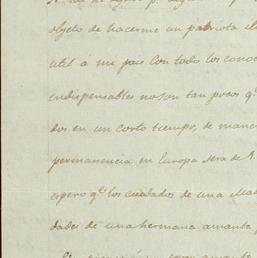 objeto de hacerme un patriota il
util á mi pais con todo los cono
indispensables no son tan pocos q.
dos en un corto tiempo, de mane
permanencia en Europa sera de
espero q.e los cuidados de una
dades de una hermana amante